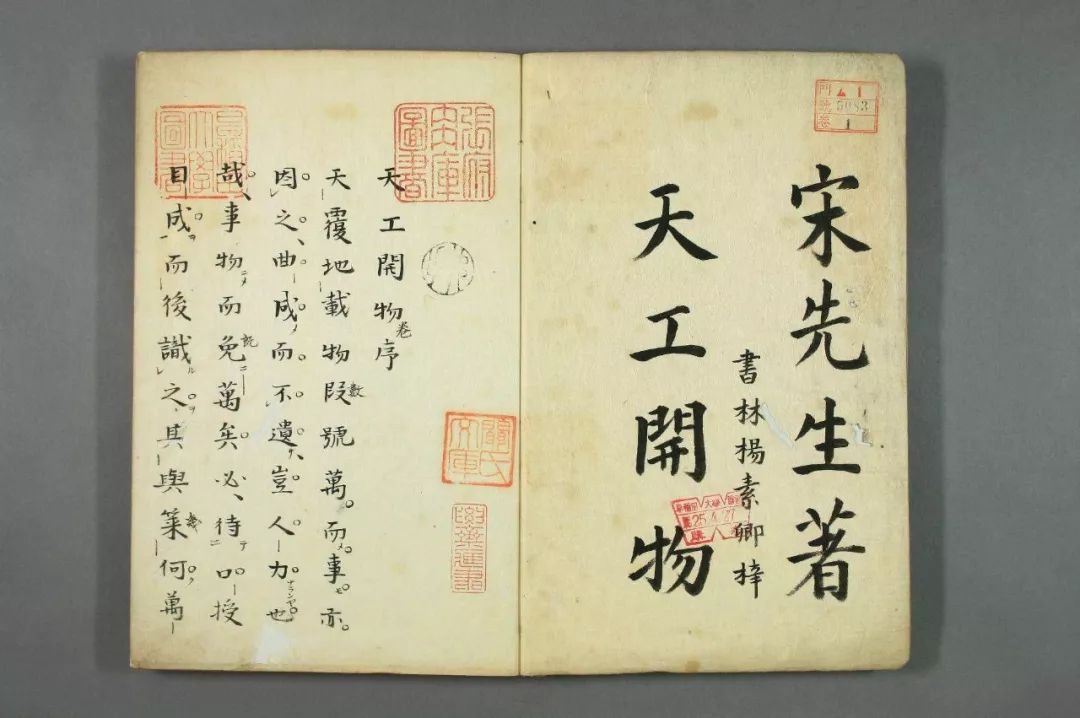 宋先生著
書林楊素卿梓
天工開物
5083
1
天工開物卷序
天覆地載物段數號萬而事亦
因之曲成而不遺豈人力也
哉事物而既免萬矣必待口授
目成而後識之其與幾何萬